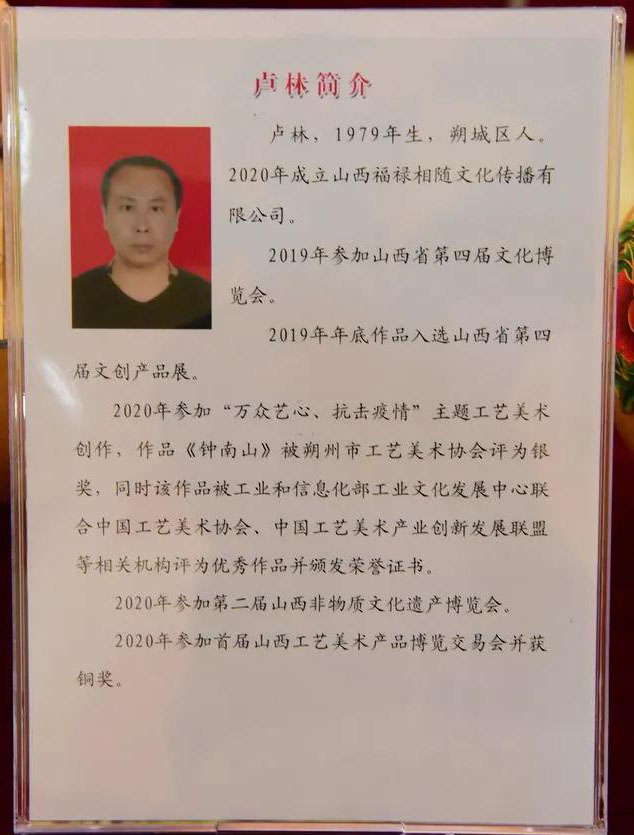 卢林简介
卢林，1979年生，朔城区人。
2020年成立山西福禄相随文化传播有
限公司。
2019年参加山西省第四届文化博
览会。
2019年年底作品入选山西省第四
届文创产品展。
2020年参加“万众艺心、抗击疫情”主题工艺美术
创作，作品《钟南山》被朔州市工艺美术协会评为银
奖，同时该作品被工业和信息化部工业文化发展中心联
合中国工艺美术协会、中国工艺美术产业创新发展联盟
等相关机构评为优秀作品并颁发荣誉证书。
2020年参加第二届山西非物质文化遗产博览会。
2020年参加首届山西工艺美术产品博览交易会并获
铜奖。